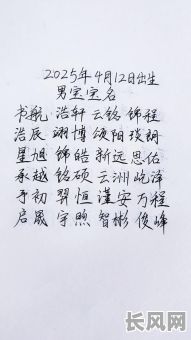 2025年4月12日出生
男宝宝名
书航 浩轩 云铭 锦程
浩辰 翊博 颂阳 琰朗
星旭 锦皓 新远 思佑
承越 铭硕 云洲 屹泽
予初 羿恒 谨安 万程
启晟 宇煦 智彬 俊峰
长风网